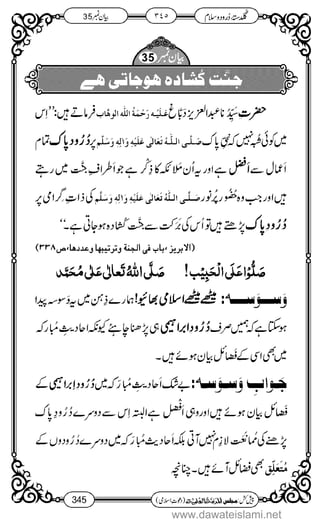 بیان نمبر 35
۳٤٥
گلدستۂ دُرود و سلام
بیان نمبر 35
جنّت کُشادہ ہوجاتی ہے
حضرتِ سَیِّدُنا عبدالعزیز دَبّاغ عَلَیْہِ رَحْمَۃُ اللہِ الْوَہَّاب فرماتے ہیں: ’’اِس
میں کوئی شُبہ نہیں کہ نبیِّ پاک صَلَّی اللہُ تَعَالٰی عَلَیْہِ وَاٰلِہٖ وَسَلَّم پر دُرُودِ پاک تمام
اَعمال سے اَفضل ہے اور یہ اُن ملائکہ کا ذِکر ہے جو اَطرافِ جنّت میں رہتے
ہیں اور جب وہ حُضُورِ پُرنور صَلَّی اللہُ تَعَالٰی عَلَیْہِ وَاٰلِہٖ وَسَلَّم کی ذاتِ گرامی پر
دُرُودِ پاک پڑھتے ہیں تو اُس کی برَکت سے جنّت کُشادہ ہوجاتی ہے۔‘‘
(الابریز، باب فی الجنة وترتیبها وعددها، ص۳۳۸)
صَلُّوْا عَلَی الْحَبِیْب! صَلَّی اللہُ تَعَالٰی عَلٰی مُحَمَّد
وَسوَسہ: میٹھے میٹھے اسلامی بھائیو! ہمارے ذہن میں یہ وَسوَسہ پیدا
ہوسکتا ہے کہ ہمیں صرف دُرُودِ ابراہیمی ہی پڑھنا چاہئے کیونکہ احادیثِ مُبارَکہ
میں بھی اسی کے فضائل بیان ہوئے ہیں۔
جوابِ وَسوَسہ: بے شک احادیثِ مُبارَکہ میں دُرُودِ ابراہیمی کے
فضائل بیان ہوئے ہیں اور وہی اَفضل ہے البتہ اِس سے دوسرے دُرُودِ پاک
پڑھنے کی مُمانَعت لازِم نہیں آتی بلکہ احادیثِ مُبارَکہ میں دوسرے دُرُودوں کے
مُتعلِّق بھی فضائل آئے ہیں۔ چُنانچہ
345
www.dawateislami.net